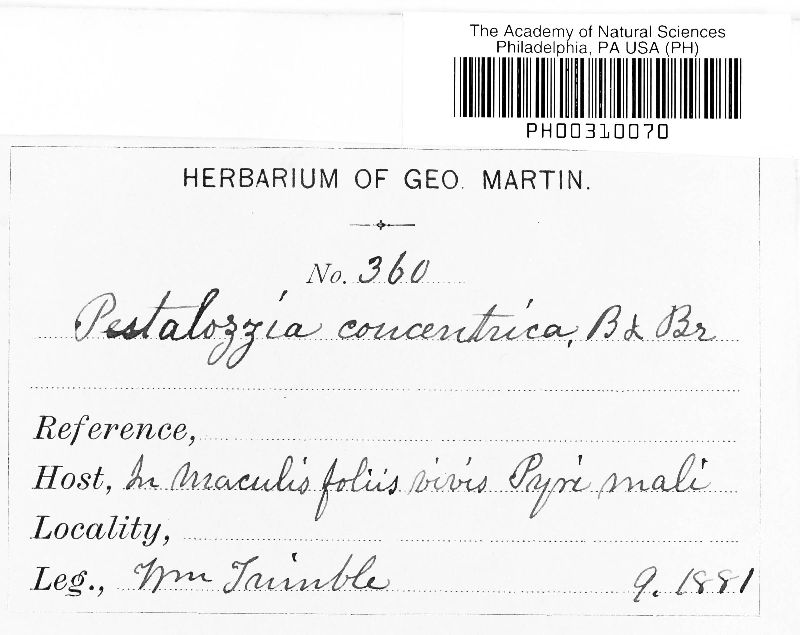 The Academy of Natural Sciences
Philadelphia, PA USA (PH)
PH00310070
HERBARIUM OF GEO. MARTIN.
No. 360
Pestalozzia concentrica, B & Br
Reference,
Host, In maculis foliis vivis Pyri mali
Locality,
Leg., Wm Trimble 9. 1881